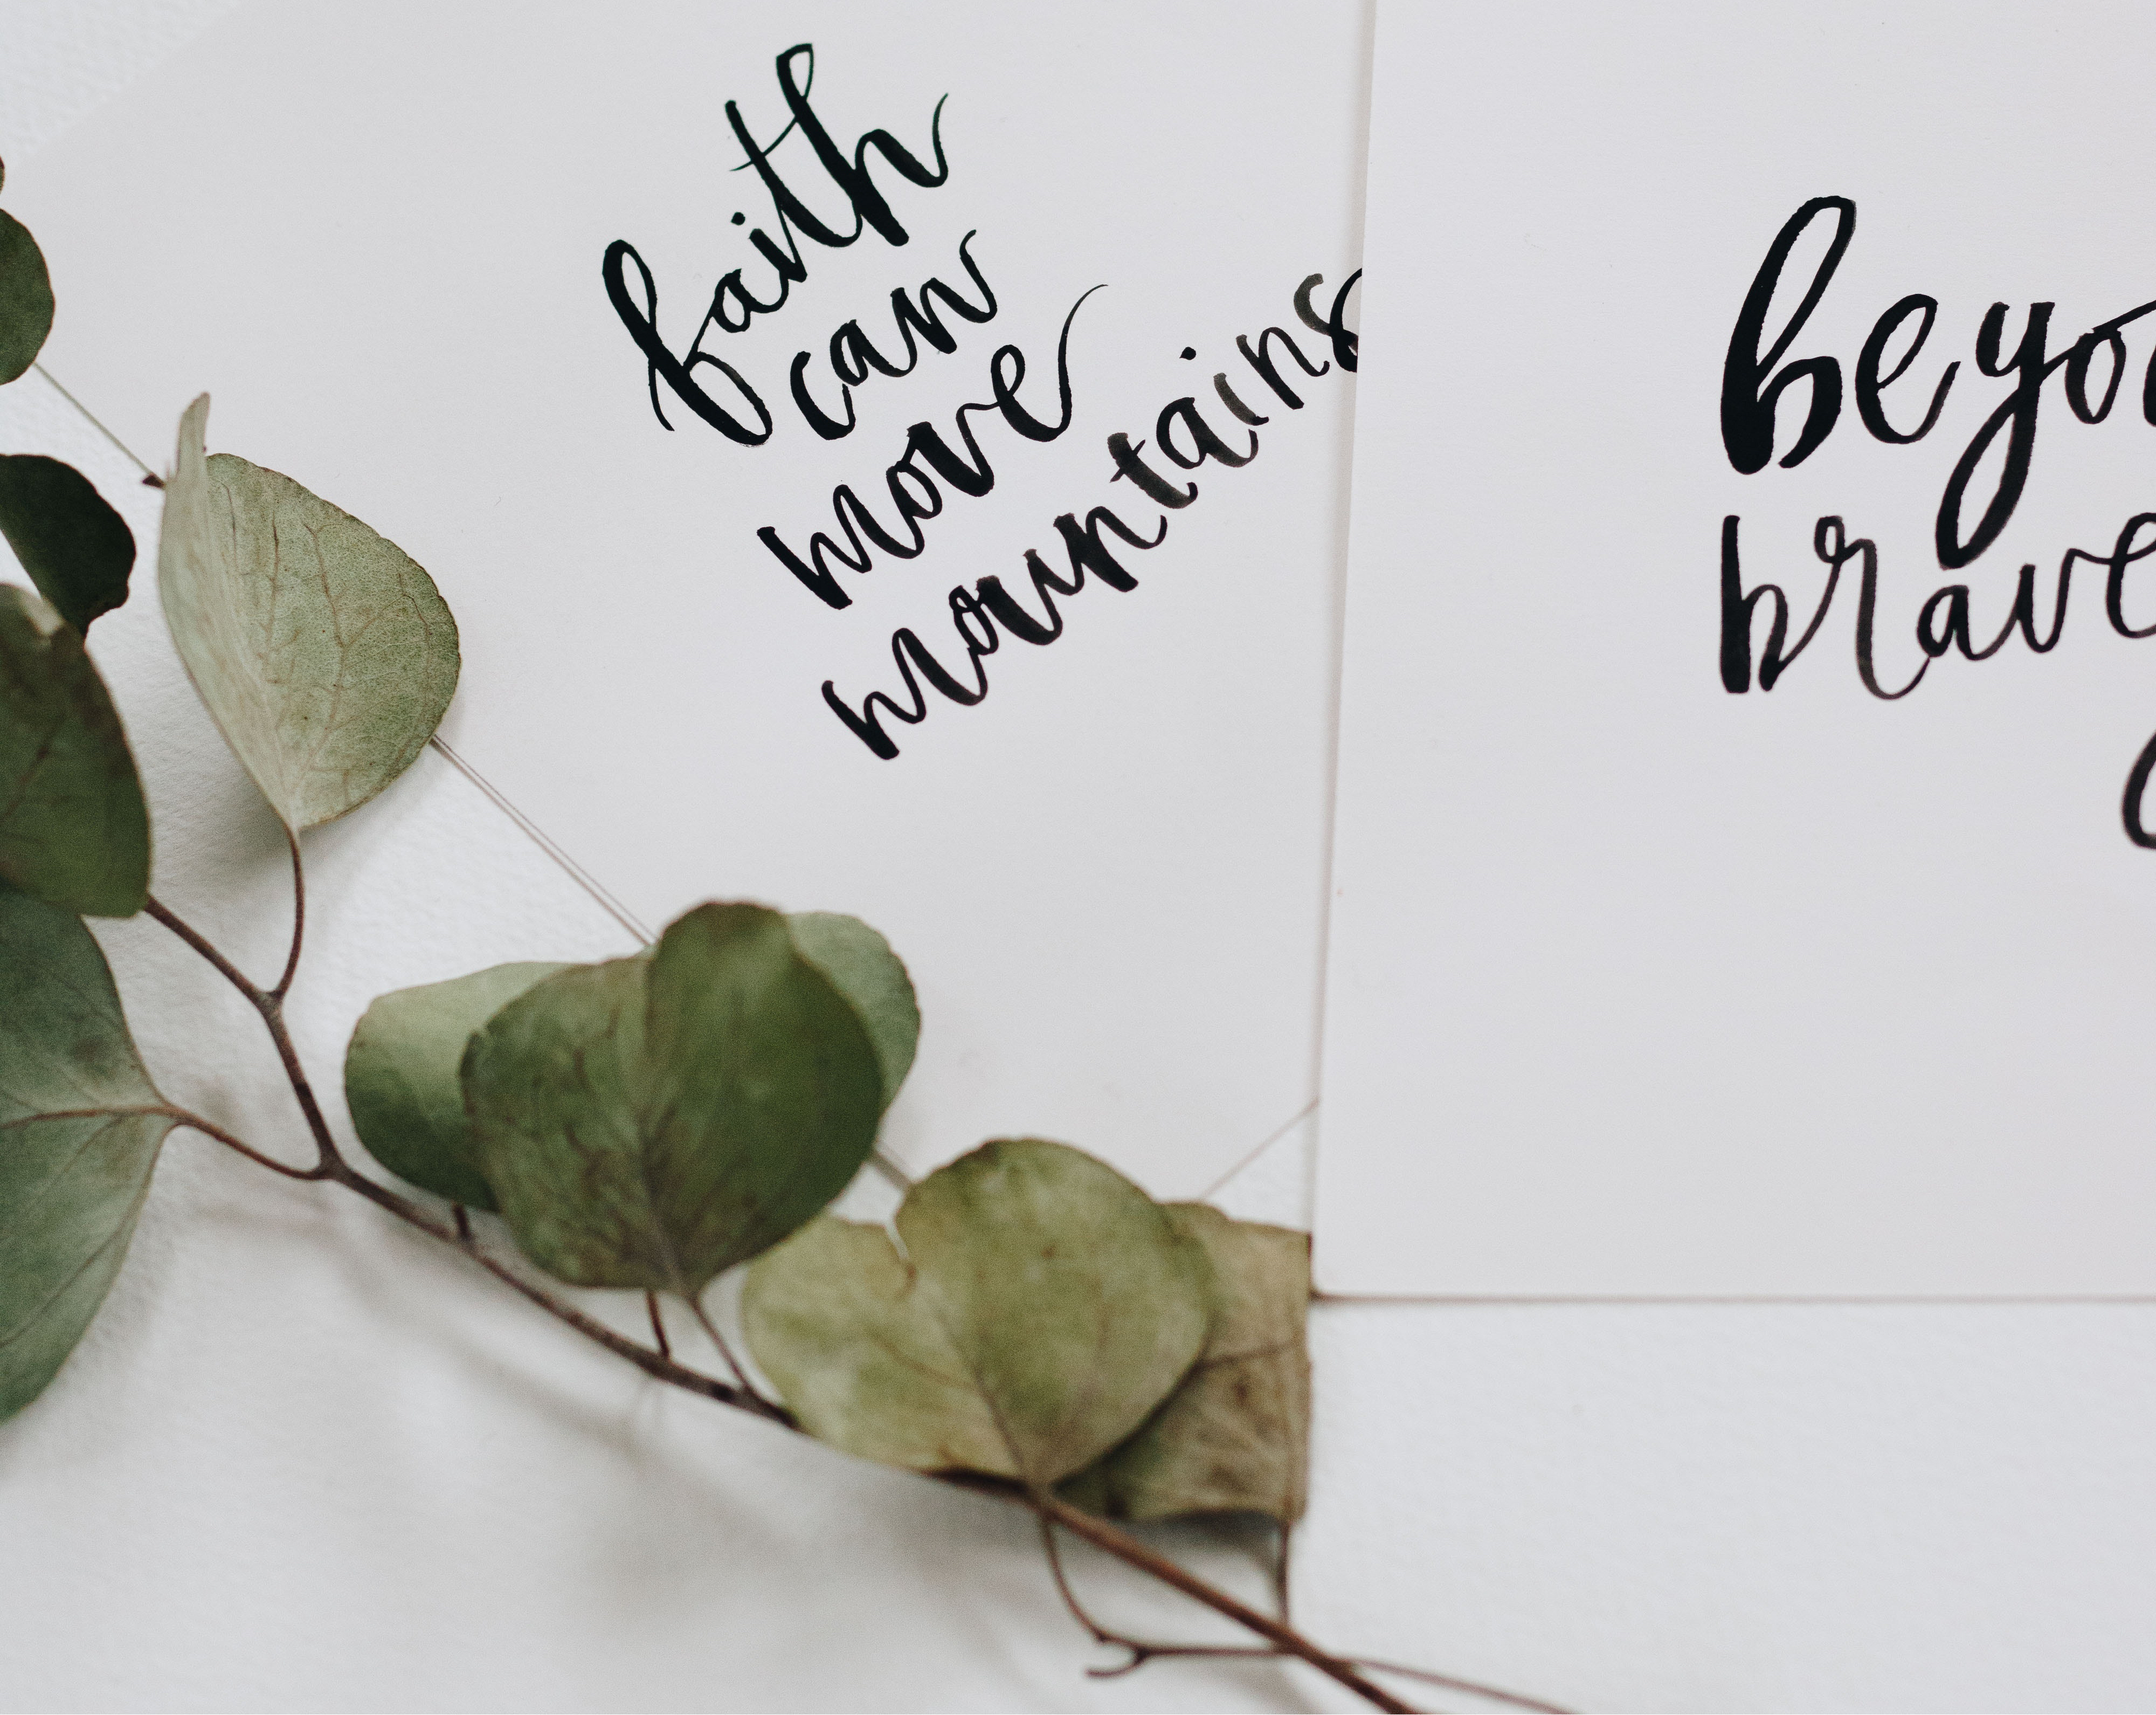 faith
can
move
mountains
beyo
brave